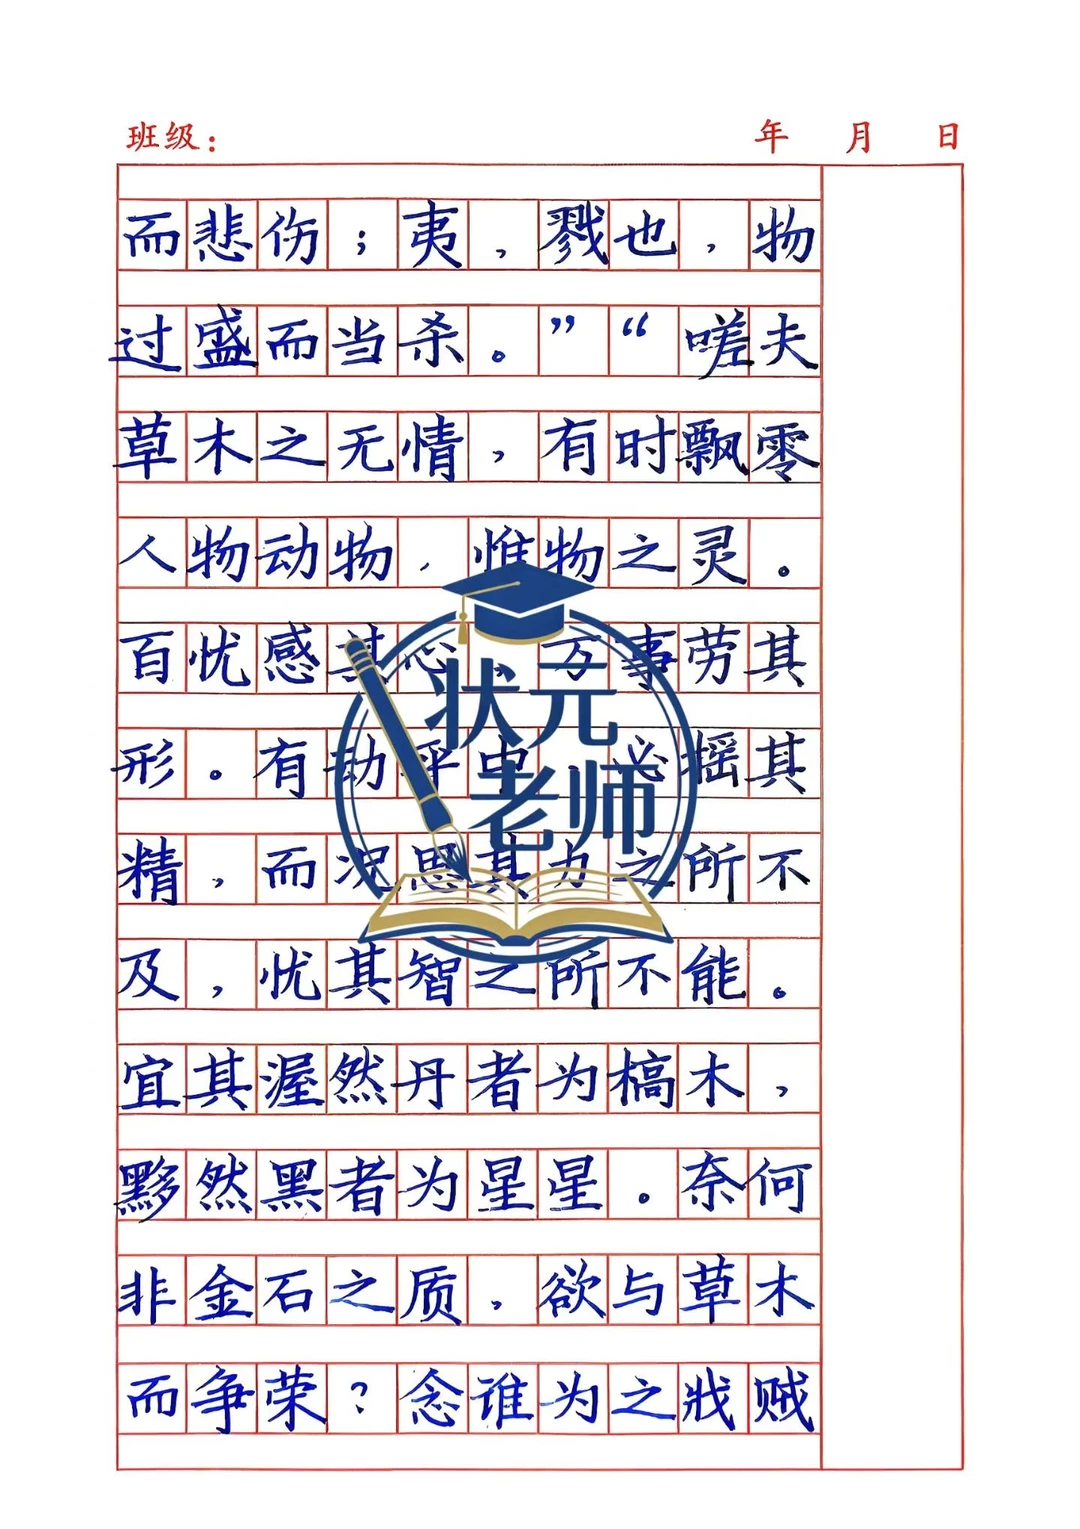 班级： 年 月 日
而悲伤；夷，戮也，物
过盛而当杀。”“嗟夫
草木之无情，有时飘零
人物动物，惟物之灵。
百忧感其心，万事劳其
形。有动乎中，必摇其
精，而况思其力之所不
及，忧其智之所不能。
宜其渥然丹者为槁木，
黟然黑者为星星。奈何
非金石之质，欲与草木
而争荣？念谁为之戕贼
状元
老师